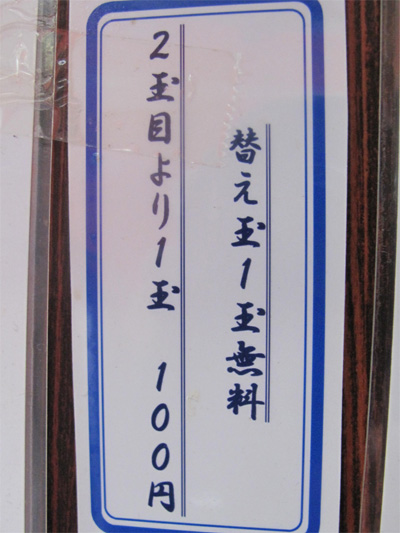 替え玉1玉無料
2玉目より1玉 100円